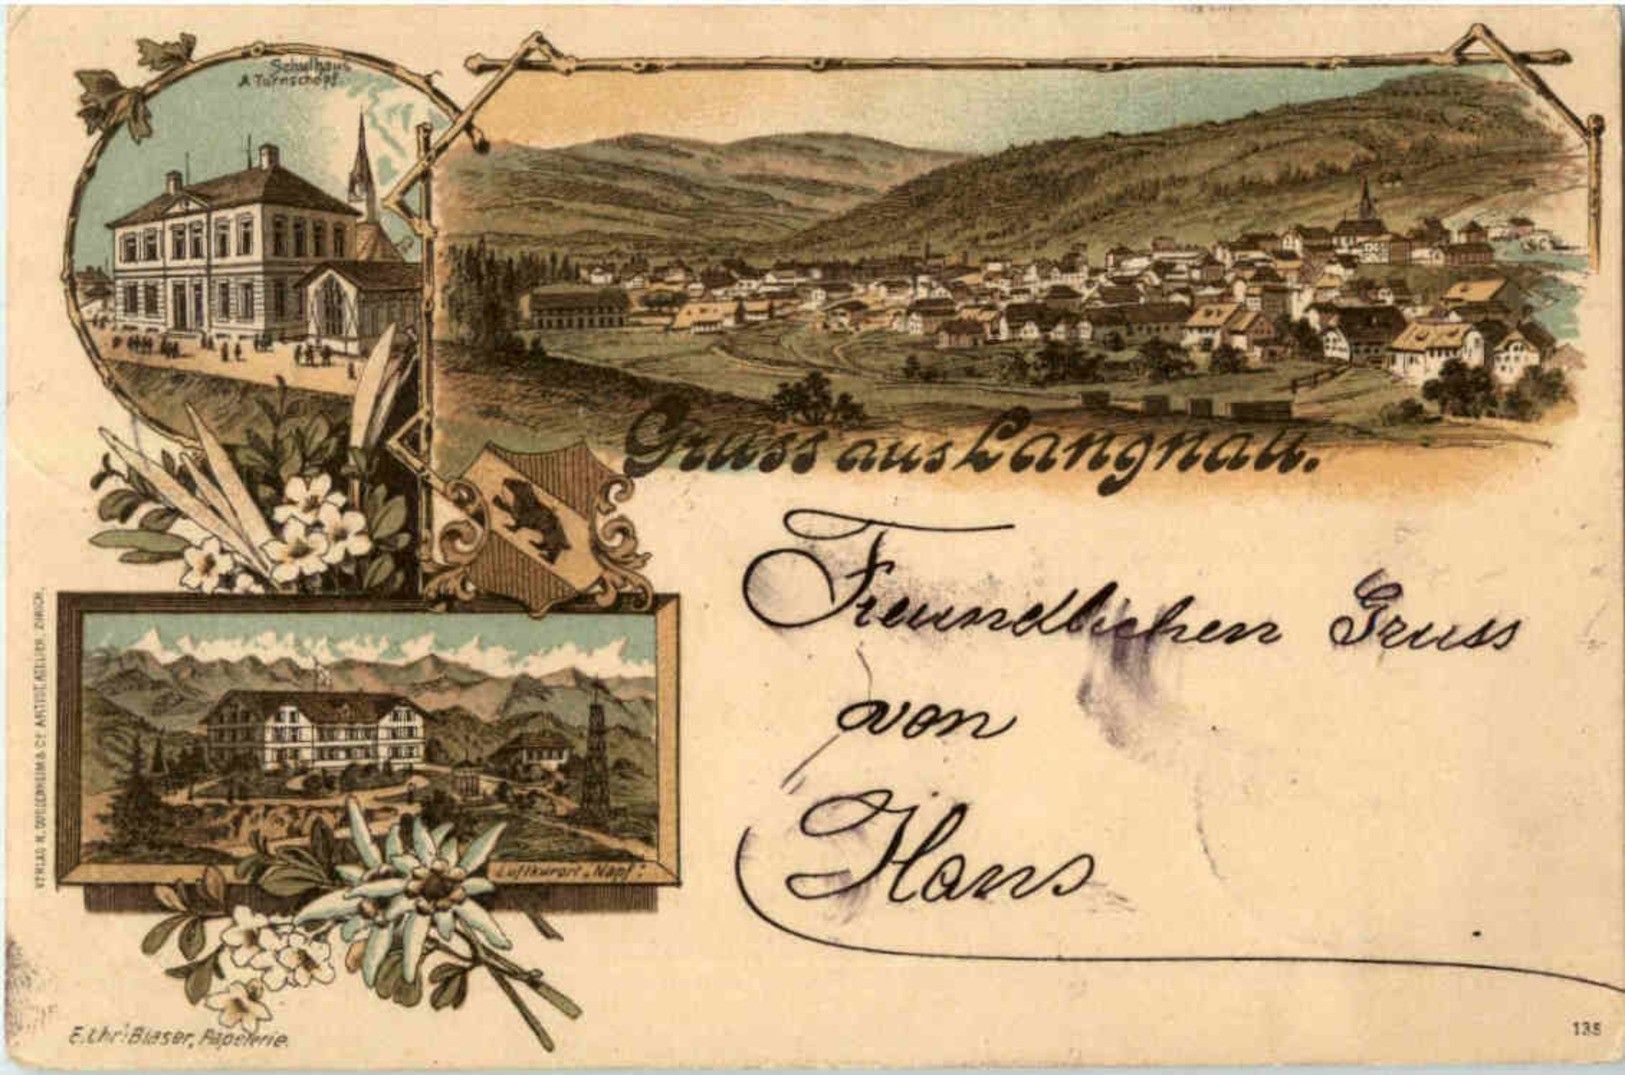 Schulhaus
& Turnschopf.
Gruss aus Langnau.
Freundlichen Gruss
von
Hans
Luftkurort „Napf“.
VERLAG H. GUGGENHEIM & Co. ARTIST. ATELIER, ZÜRICH.
E. Chr. Blaser, Papeterie.
135